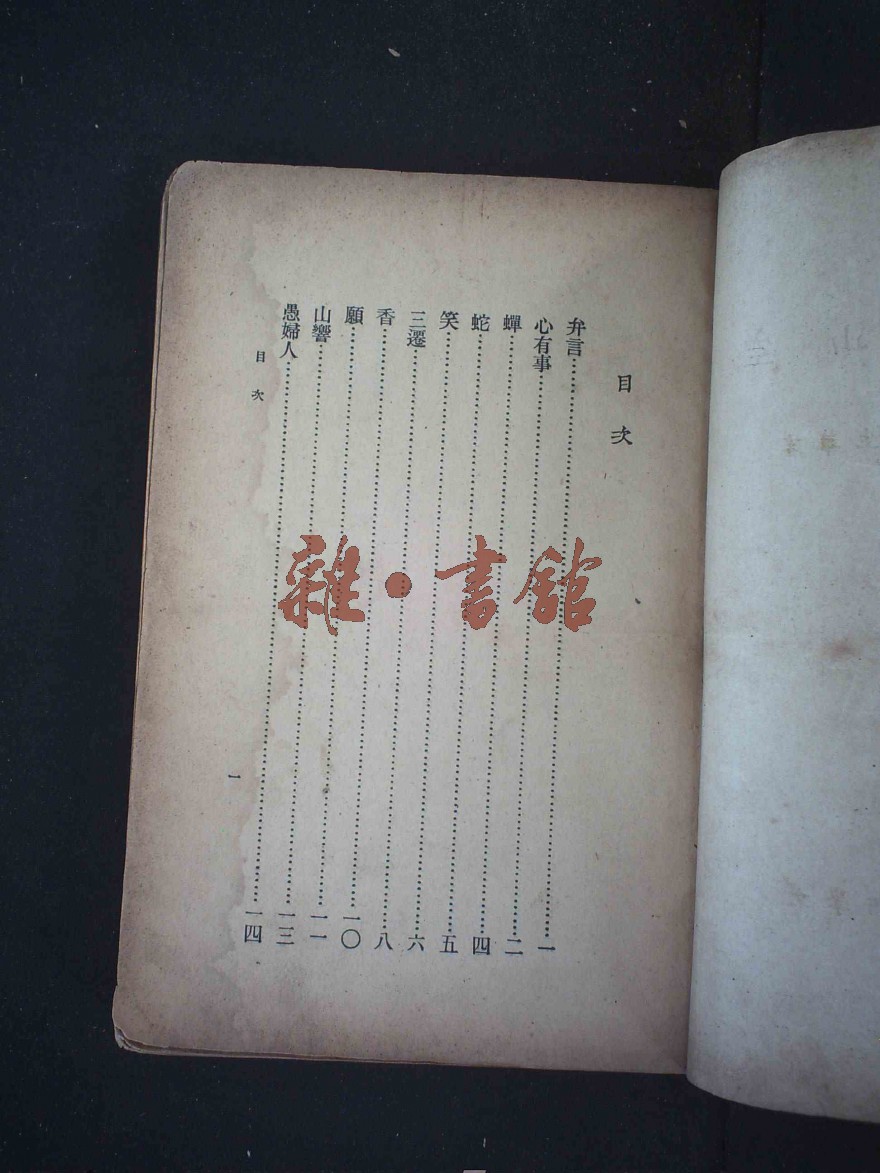 目次
弁言……一
心有事……二
蟬……四
蛇……五
笑……六
三遷……八
香……一〇
願……一一
山響……一三
愚婦人……一四
目次
一
雜·書館